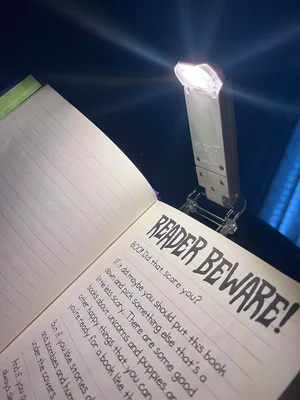 READER BEWARE!
BOO! Did that scare you?
If it did maybe you should put this book
down and pick something else that's a
little less scary... There are some good
books about unicorns and puppies and
other happy things that you can
you're ready for a book like th
But, if you like stories o
and zombies and mum
under the covers
And if you
always be